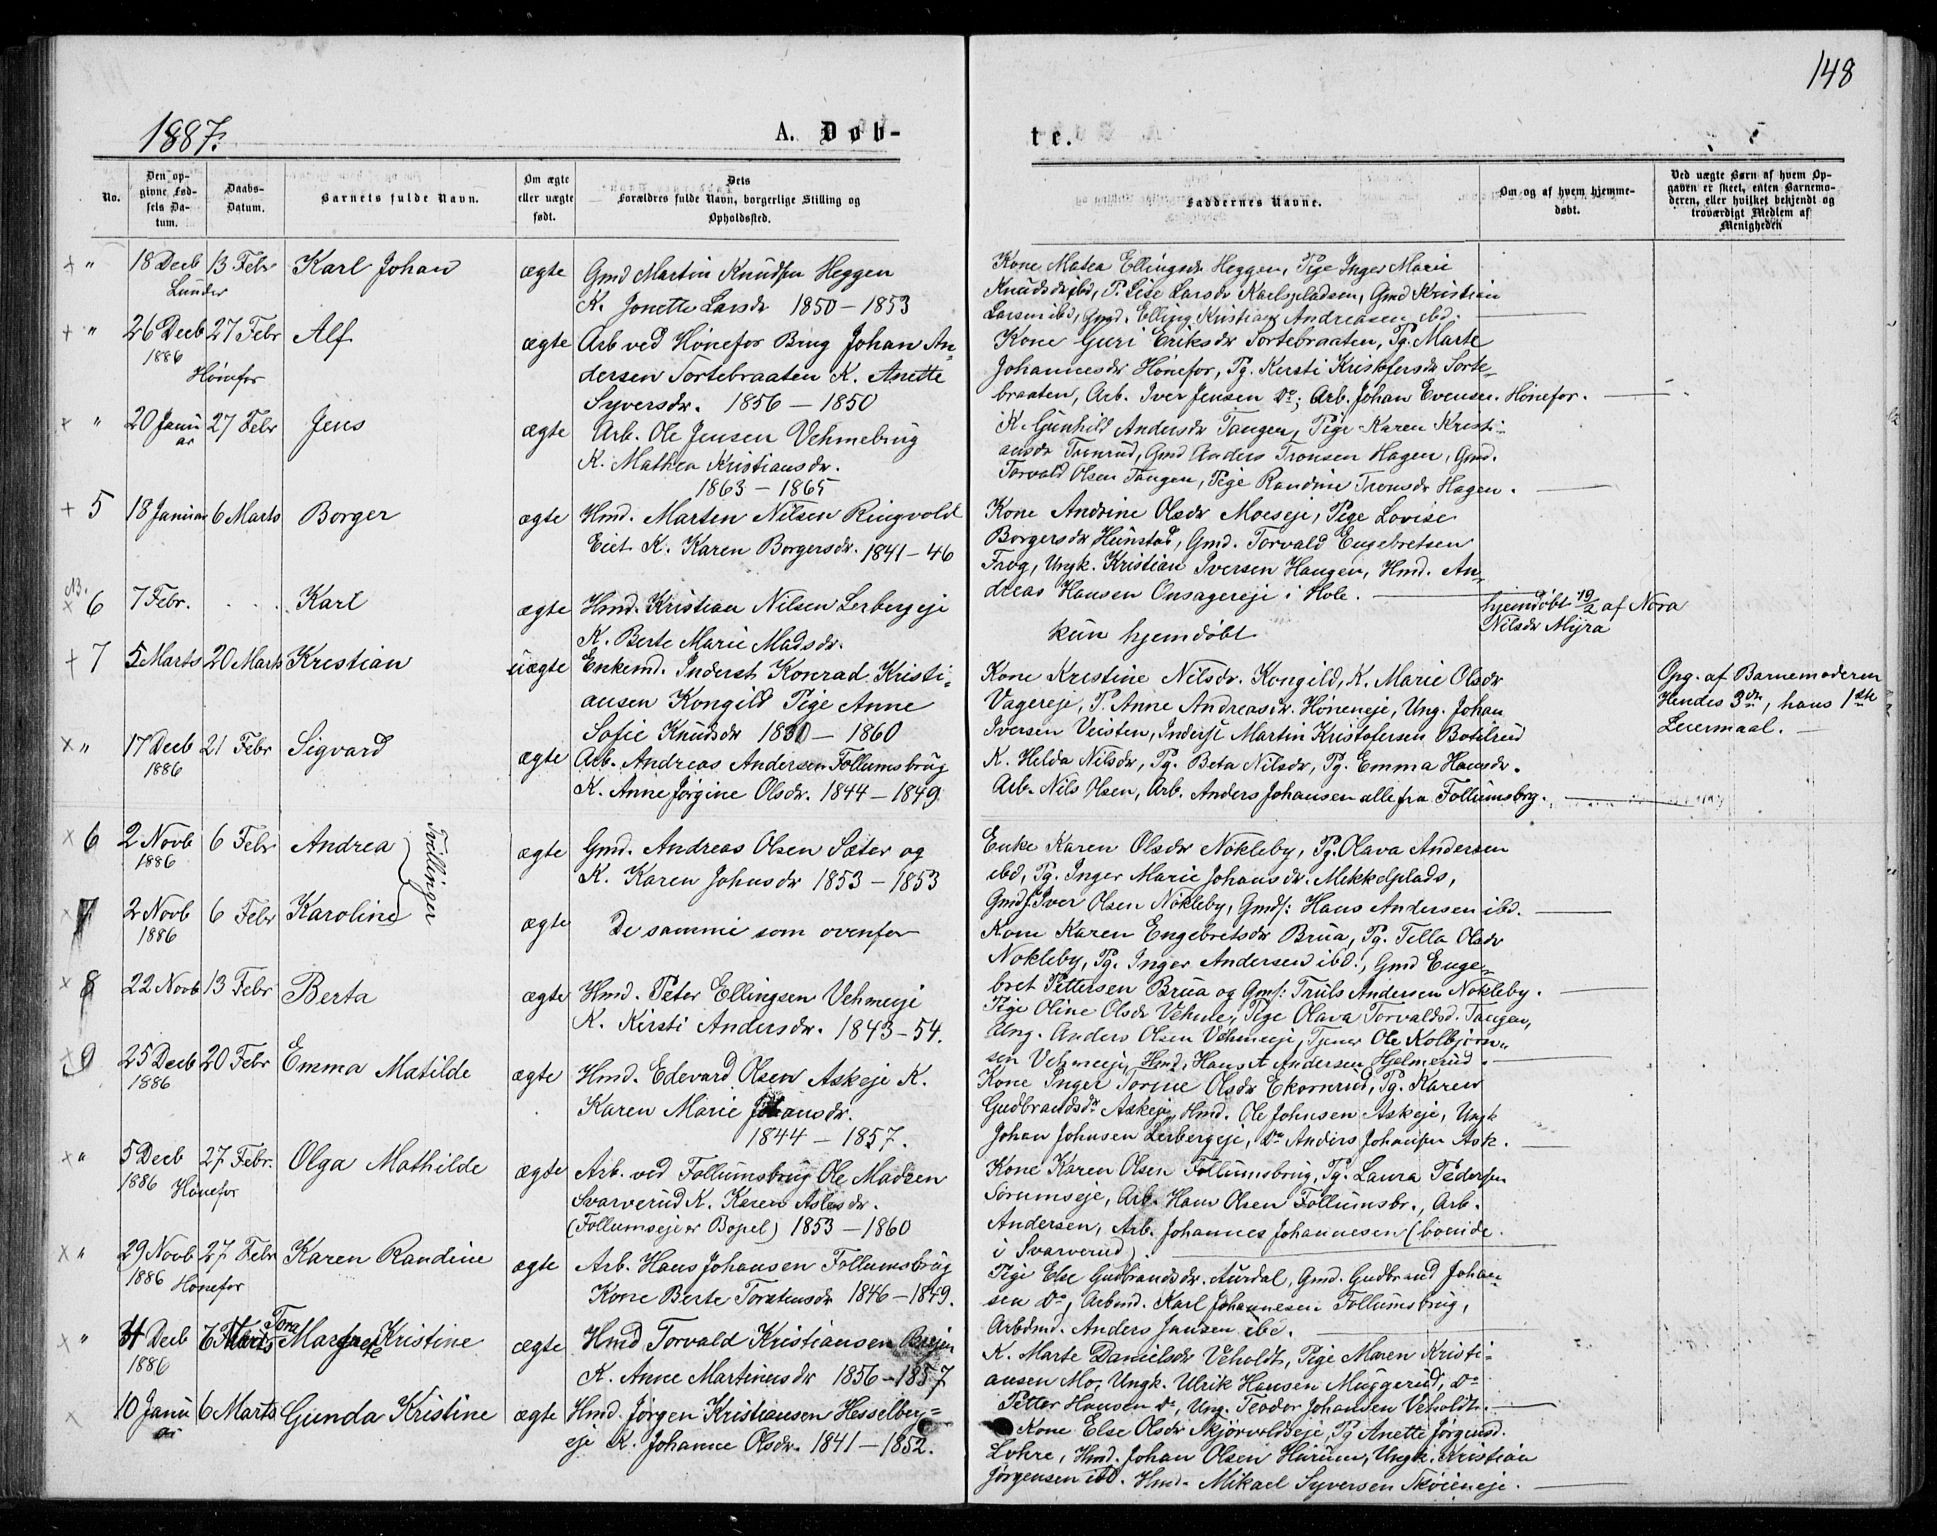 148
1887.
A. Døb-
te.
No.
Den op-
givne Fød-
sels Da-
tum.
Daabs-
Datum.
Barnets fulde Navn.
Om ægte
eller uægte
født.
Dets
Forældres fulde Navn, borgerlige Stilling og
Opholdssted.
Faddernes Navne.
Om og af hvem hjemme-
døbt.
Ved uægte Børn af hvem Op-
gaven er skeet, enten Barnemo-
deren, eller hvilket bekjendt og
troværdigt Medlem af
Menigheden
× " 18 Decb 13 Febr Karl Johan ægte Gmd Martin Knudsen Heggen
Lunder
K. Jonette Larsdr 1850 – 1853
Kone Matea Ellingsdr Heggen, Pige Inger Marie
Knudsdr ibd, P. Lise Larsdr Karlspladsen, Gmd Kristian
Larsen ibd, Gmd. Elling Kristian Andreasen ibd.
+ " 26 Decb 27 Febr Alf ægte Arb ved Hönefos Brug Johan An-
1886
Hönefos
dersen Tortebraaten K. Anette
Syversdr. 1856 – 1850
Kone Guri Eriksdr Tortebraaten, Pg. Marte
Johannesdr Hönefos, Pg. Kersti Kristofersdr Torte-
braaten, Arb. Iver Jensen Do; Arb. Johan Evensen. Hönefos.
+ " 20 Janu 27 Febr Jens ægte Arb. Ole Jensen Vehmebrug
ar
K. Mathea Kristiansdr.
1863 – 1865
K. Gunhild Andersdr Tangen, Pige Karen Kristi-
ansdr Tronrud, Gmd Anders Tronsen Hagen, Gmd.
Torvald Olsen Tangen, Pige Randine Tronsdr Hagen.
+ 5 18 Januar 6 Marts Borger ægte Hmd. Marten Nilsen Ringvold
Eiet K. Karen Borgersdr. 1841–46
Kone Andrine Olsdr Moeseje, Pige Lovise
Borgersdr Hunstad, Gmd. Torvald Engebretsen
Frog, Ungk. Kristian Iversen Haugen, Hmd. An-
dreas Hansen Onsagereje i Hole.
NB.
× 6 7 Febr. Karl ægte Hmd. Kristian Nilsen Lerbergeje
K. Berte Marie Madsdr.
kun hjemdøbt
hjemdøbt 19/2 af Nora
Nilsdr Myra
+ 7 5 Marts 20 Marts Kristian uægte Enkemd. Inderst Konrad Kristi-
ansen Kongild Pige Anne
Sofie Knudsdr 1830 – 1860
Kone Kristine Nilsdr. Kongild, K. Marie Olsdr
Vagereje, P. Anne Andreasdr. Höneneje, Ung. Johan
Iversen Veisten, Inderst Martin Kristofersen Botilrud
Opg. af Barnemoderen
Hendes 3die, hans 1ste
Leiermaal.
× " 17 Decb 21 Febr Sigvard ægte Arb. Andreas Andersen Follumsbrug
1886
K. Anne Jørgine Olsdr. 1844 – 1849
K. Helda Nilsdr, Pg. Beta Nilsdr, Pg. Emma Hansdr.
Arb. Nils Olsen, Arb. Anders Johansen alle fra Follumsbrg.
× 6 2 Novb 6 Febr Andrea ægte Gmd. Andreas Olsen Sæter og
1886
Tvillinger
K. Karen Johnsdr 1853 – 1853
Enke Karen Olsdr Nökleby, Pg. Olava Andersen
ibd, Pg. Inger Marie Johansdr. Mikkelplads,
Gmdf Iver Olsen Nökleby, Gmdf: Hans Andersen ibd.
× 7 2 Novb 6 Febr Karoline ægte De samme som ovenfor
1886
Kone Karen Engebretsdr Brua, Pg. Tilla Olsdr
Nökleby, Pg. Inger Andersen ibd., Gmd Enge-
bret Pettersen Brua og Gmf: Truls Andersen Nökleby.
× 8 22 Novb 13 Febr Berta ægte Hmd. Peter Ellingsen Vehmeeje
K. Kirsti Andersdr. 1843–54.
Pige Oline Olsdr Vehme, Pige Olava Torvaldsd. Tangen,
Ung. Anders Olsen Vehmeeje, Tjener Ole Kolbjörn-
sen Vehmeeje, Hmd. Hans A Andersen Hjelmerud.
× 9 25 Decb 20 Febr Emma Matilde ægte Hmd. Edevard Olsen Askeje K.
1886
Karen Marie Johansdr.
1844 – 1857.
Kone Inger Torine Olsdr Ekornrud, Pg. Karen
Gudbrandsdr Askeje, Hmd. Ole Johnsen Askeje, Ungk
Johan Johnsen Lerbergeje, Do Anders Johansen Ask.
× " 5 Decb 27 Febr. Olga Mathilde ægte Arb. ved Follumsbrug Ole Madsen
1886 Hönefos
Svarverud K. Karen Aslesdr.
(Follumseje er Bopel) 1853 – 1860
Kone Karen Olsen Follumsbrug, Pg. Laura Pedersen
Sörumseje, Arb. Hans Olsen Follumsbr., Arb.
Andersen, Arb. Johannes Johannesen (boende
i Svarverud).
× " 29 Novb 27 Febr Karen Randine ægte Arb. Hans Johansen Follumsbrug
1886 Hönefos
Kone Berte Torstensdr 1846 – 1849.
Pige Else Gudbrandsdr. Aurdal, Gmd. Gudbrand Johan-
sen Do, Arbmd. Karl Johannesen Follumsbrug,
Arbdmd. Anders Jansen ibd.
× " 31 Decb 6 Marts Tora Margrete Kristine ægte Hmd Torvald Kristiansen
1886
K. Anne Martinusdr 1856 – 1857
K. Marte Danielsdr Veholdt, Pige Maren Kristi-
ansen Mo, Ungk. Ulrik Hansen Muggerud, Do
Petter Hansen Do, Ung. Teodor Johansen Veholdt.
× 10 Janu 6 Marts Gunda Kristine ægte Hmd. Jørgen Kristiansen Hesselberg-
ar
eje K. Johanne Olsdr. 1841 – 1852.
Kone Else Olsdr Skjörvoldseje, Pg Anette Jörginsd.
Lohre, Hmd. Johan Olsen Hurum, Ungk. Kristian
Jörgensen ibd. Hmd. Mikael Syversen Sköieneje.